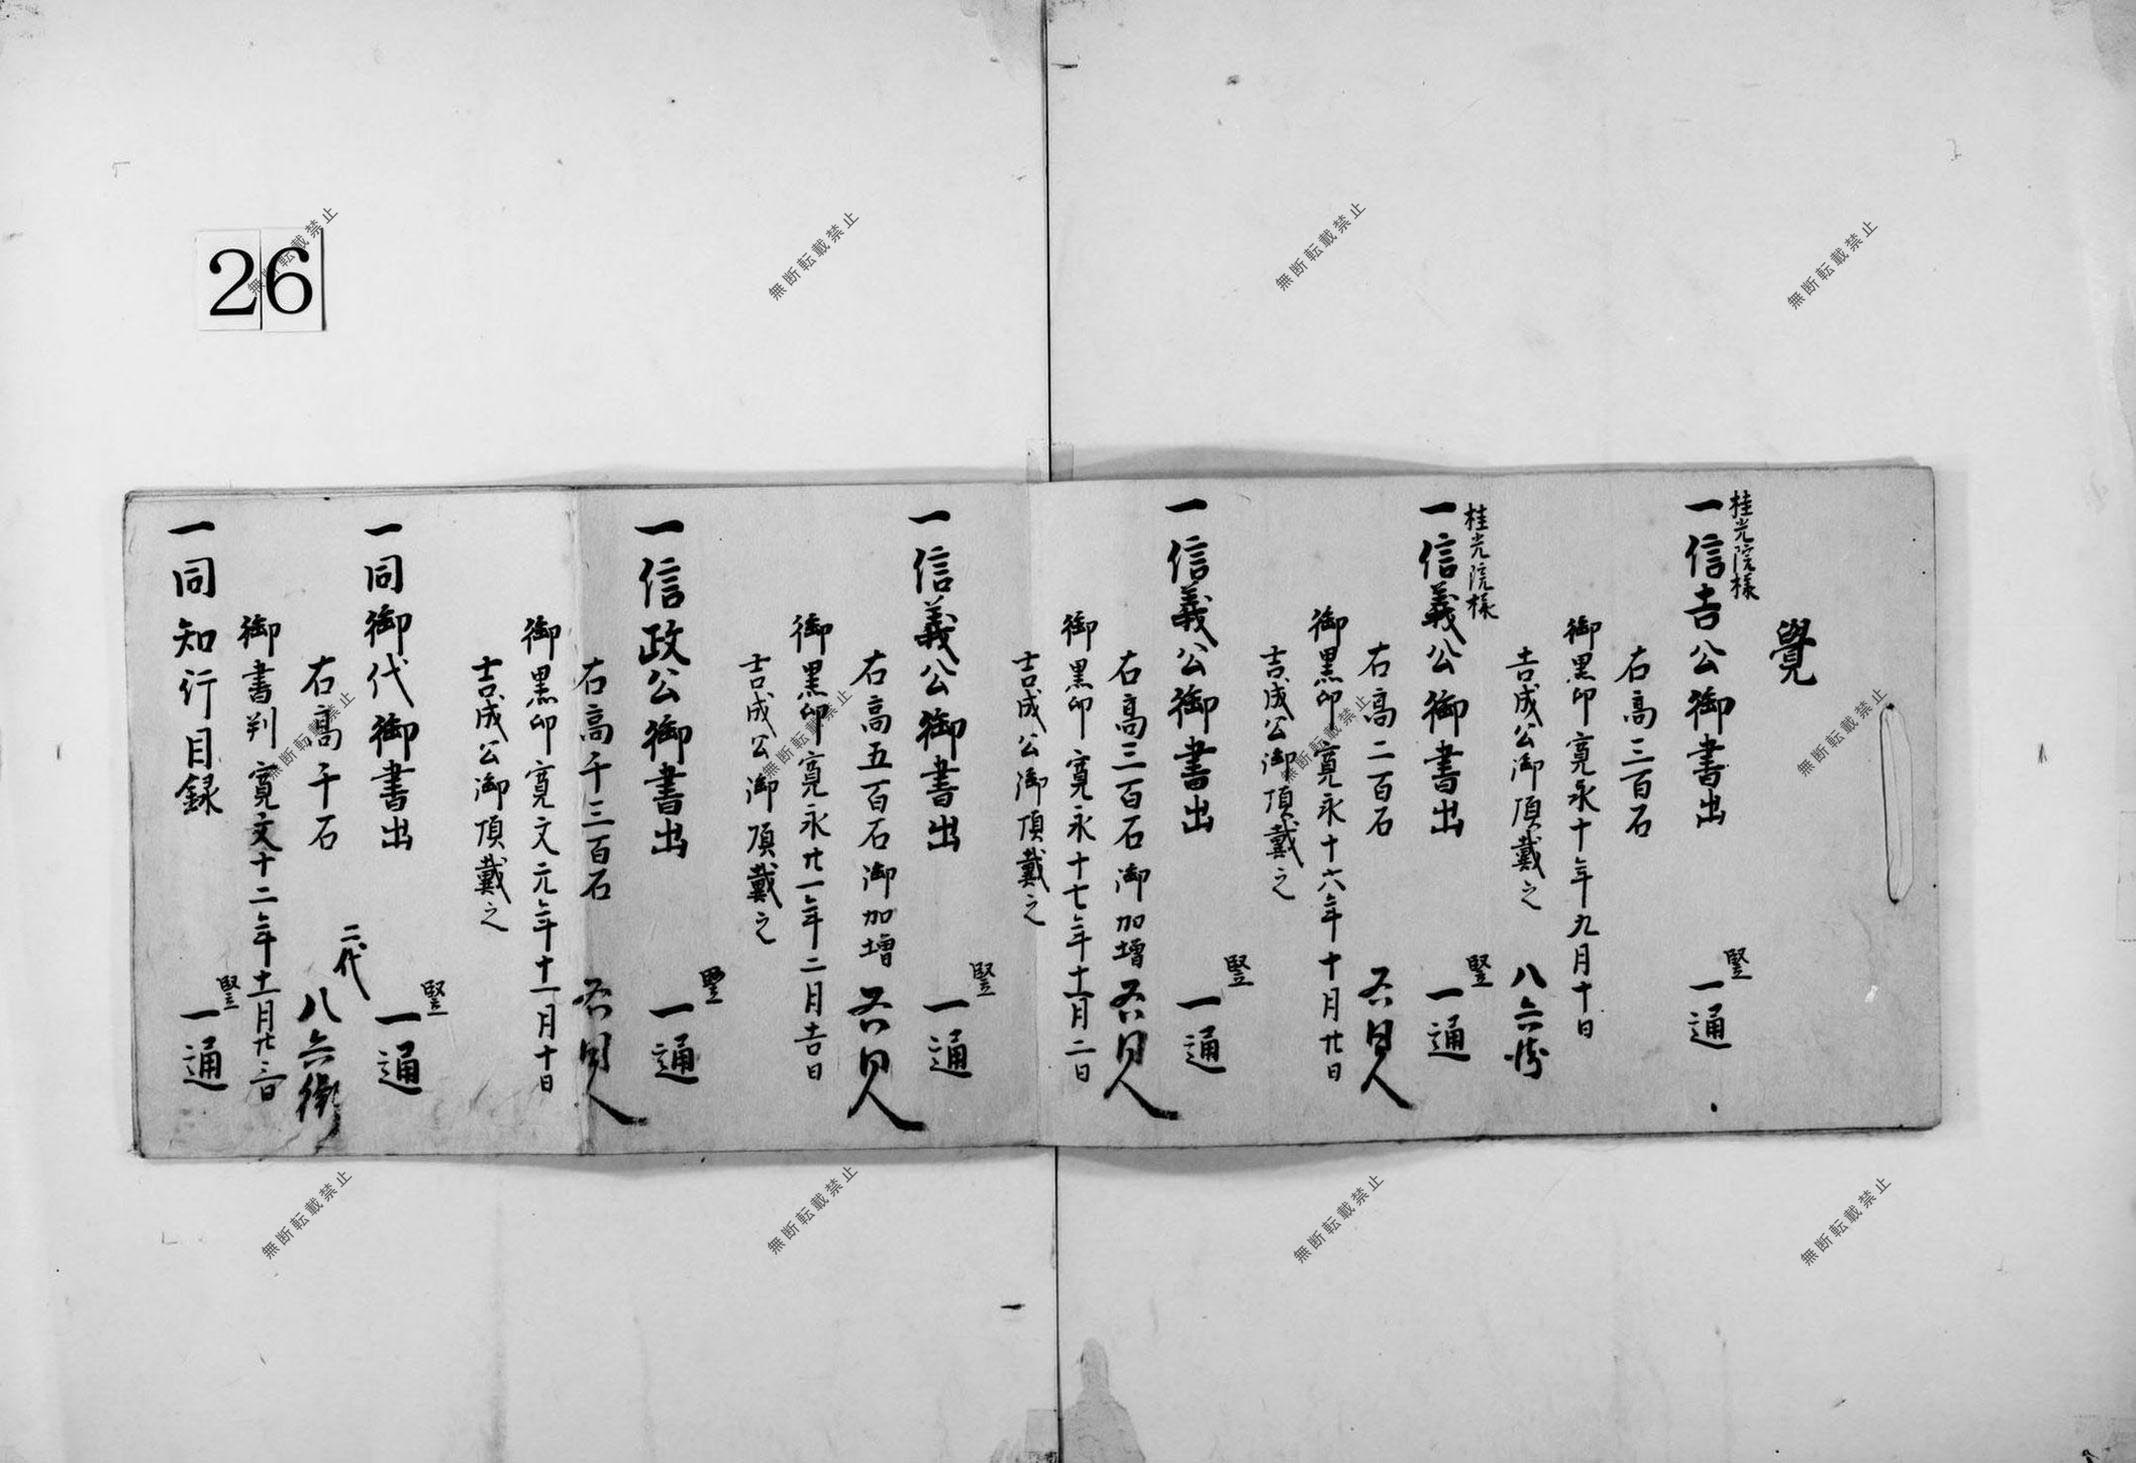 26
覺
桂光院様
一信吉公御書出 竪一通
右高三百石
御黒印寛永十年九月十日
吉成公御頂戴之 八
桂光院様
一信義公御書出 竪一通
右高二百石
御黒印寛永十六年十月廿日
吉成公御頂戴之
一信義公御書出 竪一通
右高三百石御加増
御黒印寛永十七年十一月二日
吉成公御頂戴之
一信義公御書出 竪一通
右高五百石御加増
御黒印寛永廿一年二月吉日
吉成公御頂戴之
一信政公御書出 竪一通
右高千三百石
御黒印寛文元年十一月十日
吉成公御頂戴之
一同御代御書出 竪一通
右高千石 二代 八
御書判寛文十二年十一月廿三日
一同知行目録 竪一通
無断転載禁止
無断転載禁止
無断転載禁止
無断転載禁止
無断転載禁止
無断転載禁止
無断転載禁止
無断転載禁止
無断転載禁止
無断転載禁止
無断転載禁止
無断転載禁止